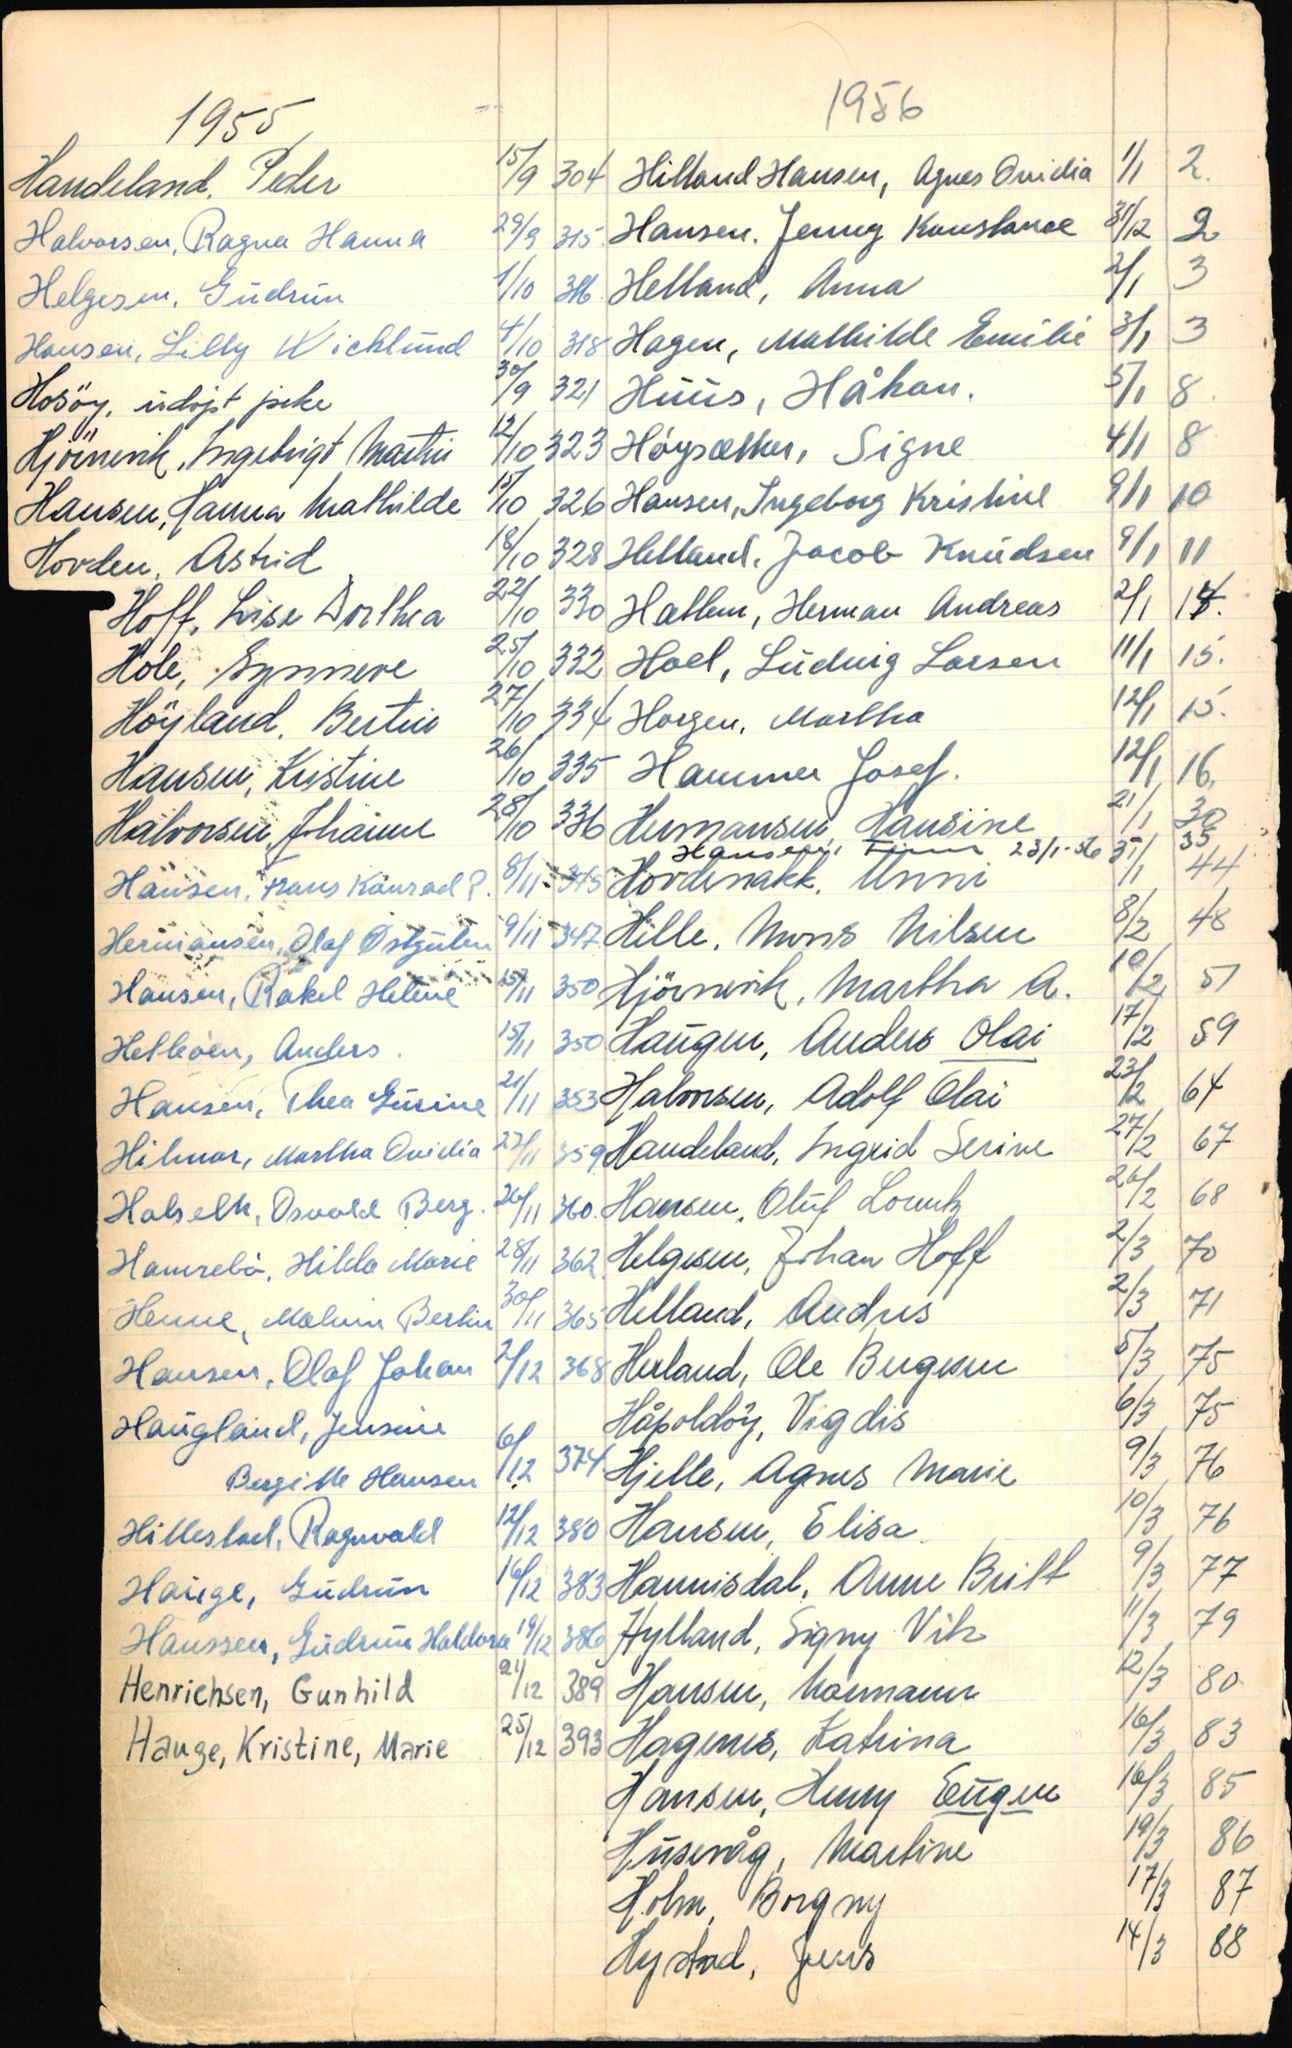 1955
Handeland, Peder 15/9 304
Halvorsen, Ragna Hanna 29/9 315
Helgesen, Gudrun 1/10 316
Hansen, Lilly Wicklund 4/10 318
Hosöy, udöpt pike 30/9 321
Hjörnevik, Ingebrigt Martin 12/10 323
Hansen, Hanna Mathilde 15/10 326
Hovden, Astrid 18/10 328
Hoff, Lise Dorthea 22/10 330
Hole, Synneve 25/10 332
Höyland, Bertin 27/10 334
Hansen, Kristine 26/10 335
Halvorsen, Johanne 28/10 336
Hansen, Hans Konrad P. 8/11 345
Hermansen, Olaf Østgulen 9/11 347
Hansen, Rakel Helene 15/11 350
Hetleöen, Anders. 15/11 350
Hansen, Thea Gurine 21/11 353
Hilmar, Martha Ovidia 27/11 359
Halseth, Osvald Berg. 26/11 360
Hamrebö, Hilda Marie 28/11 362
Henne, Malvin Bertin 30/11 365
Hansen, Olaf Johan 2/12 368
Haugland, Jensine
Bergitte Hansen 6/12 374
Hillestad, Ragnvald 12/12 380
Hauge, Gudrun 16/12 383
Hanssen, Gudrun Haldora 19/12 386
Henrichsen, Gunhild 21/12 389
Hauge, Kristine, Marie 25/12 393
1956
Hilland Hansen, Agnes Ovidia 1/1 2.
Hansen, Jenny Konstanse 31/12 2
Helland, Anna 2/1 3
Hagen, Mathilde Emilie 3/1 3
Huus, Håkon. 5/1 8.
Höysæther, Signe 4/1 8
Hansen, Ingeborg Kristine 9/1 10
Helland, Jacob Knudsen 9/1 11
Hatlem, Herman Andreas 2/1 14.
Hoel, Ludvig Larsen 11/1 15.
Horgen, Martha 12/1 15.
Hammer Josef. 12/1 16.
Hermansen, Hansine 21/1 30
Hansen, Finn 23/1-56 35
Hordenakk, Unni 31/1 44
Hille, Mons Nilsen 8/2 48
Hjörnevik, Martha A. 10/2 51
Haugen, Anders Olai 17/2 59
Halvorsen, Adolf Olai 23/2 64
Handeland, Ingrid Serine 27/2 67
Hansen, Oluf Lorentz 26/2 68
Helgesen, Johan Hoff 2/3 70
Helland, Andreas 2/3 71
Herland, Ole Bergesen 5/3 75
Håpoldöy, Vigdis 6/3 75
Hjelle, Agnes Marie 9/3 76
Hansen, Elisa 10/3 76
Hannisdal, Anne Britt 9/3 77
Hylland, Signy Vik 11/3 79
Hansen, Normann 12/3 80
Hagenes, Katrina 16/3 83
Hansen, Henry Eugen 16/3 85
Husevåg, Martine 19/3 86
Holm, Borgny 17/3 87
Hystad, Jens 14/3 88